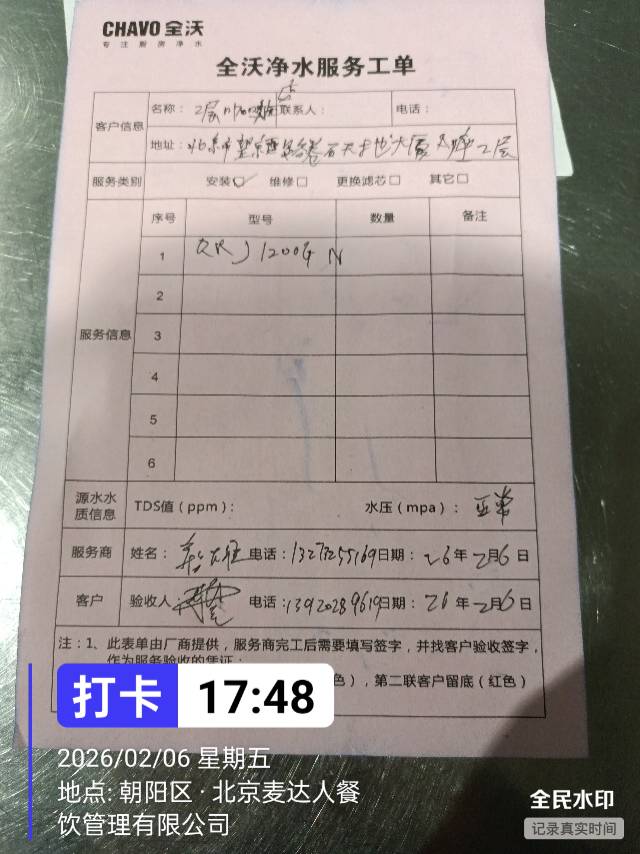 CHAVO 全沃
专注厨房净水
全沃净水服务工单
客户信息
名称： 2层 联系人： 电话：
地址：北京市望京 大厦 2层
服务类别 安装☑ 维修☐ 更换滤芯☐ 其它☐
服务信息
序号 型号 数量 备注
1 1200G N
2
3
4
5
6
源水水质信息 TDS值（ppm）： 水压（mpa）：正常
服务商 姓名： 电话：13272255169 日期：26年2月6日
客户 验收人： 电话：13920289619 日期：26年2月6日
注：1、此表单由厂商提供，服务商完工后需要填写签字，并找客户验收签字，
作为服务验收的凭证；
色），第二联客户留底（红色）
打卡 17:48
2026/02/06 星期五
地点: 朝阳区 · 北京麦达人餐
饮管理有限公司
全民水印
记录真实时间